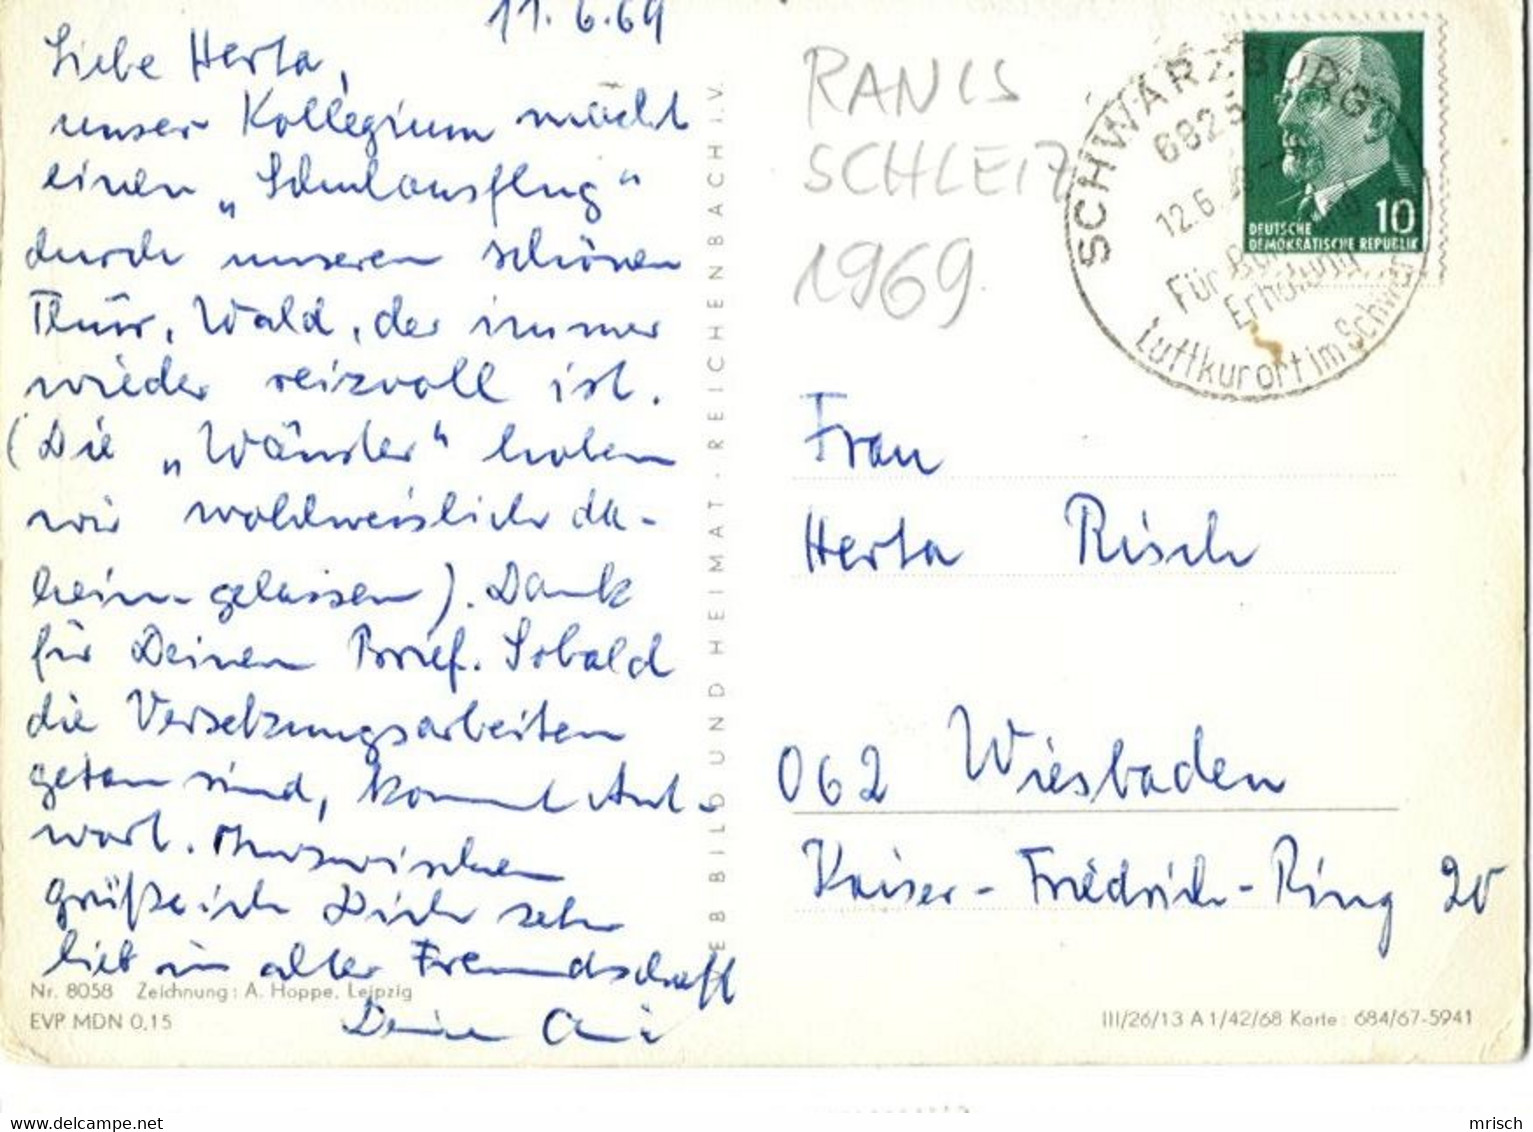 11.6.69
Liebe Herta,
unser Kollegium macht
einen „Schulausflug“
durch unseren schönen
Thür. Wald, der immer
wieder reizvoll ist.
(Die „Wänster“ haben
wir wohlweislich da-
heim gelassen). Dank
für Deinen Brief. Sobald
die Versetzungsarbeiten
getan sind, kommt Ant-
wort. Inzwischen
grüße ich Dich sehr
lieb in alter Freundschaft
Deine
Nr. 8058 Zeichnung: A. Hoppe, Leipzig
EVP MDN 0,15
VEB BILD UND HEIMAT · REICHENBACH I.V.
RANIS
SCHLEIZ
1969
SCHWARZBURG
6823
12.6.
Für
Erholung
Luftkurort im Schwarz
10
DEUTSCHE
DEMOKRATISCHE REPUBLIK
Frau
Herta Risch
062 Wiesbaden
Kaiser-Friedrich-Ring 20
III/26/13 A 1/42/68 Karte: 684/67-5941
www.delcampe.net
mrisch